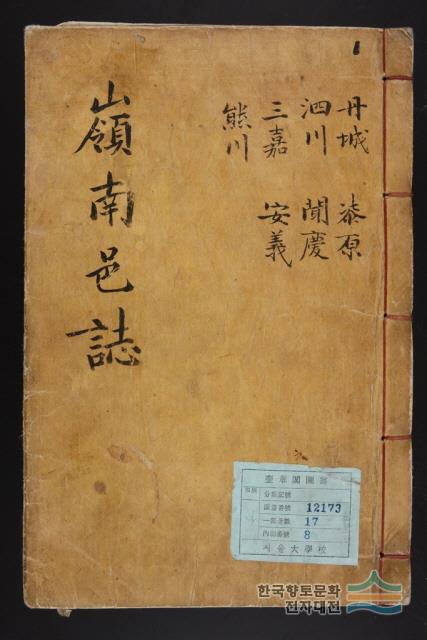 嶺南邑誌
丹城 漆原
泗川 聞慶
三嘉 安義
熊川
奎章閣圖書
分類記號
圖書番號 12173
一部冊數 17
內副番號 8
서울大學校
한국향토문화
전자대전